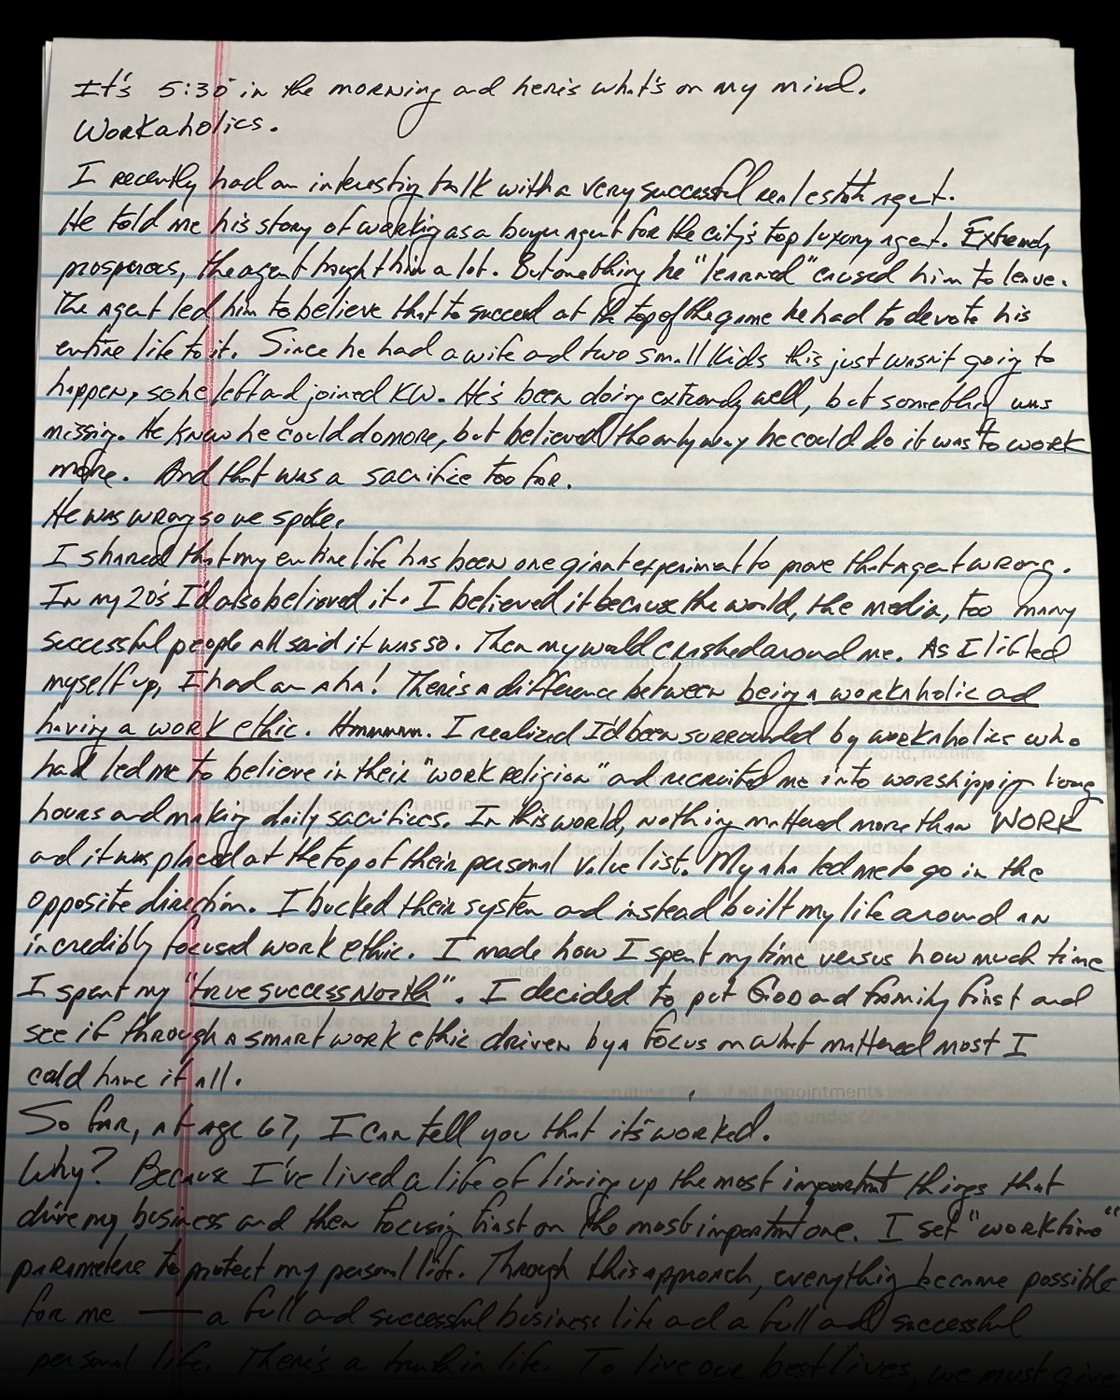 It's 5:30 in the morning and here's what's on my mind.
Workaholics.
I recently had an interesting talk with a very successful real estate agent.
He told me his story of working as a buyer agent for the city's top luxury agent. Extremely
prosperous, the agent taught him a lot. But one thing he "learned" caused him to leave.
The agent led him to believe that to succeed at the top of the game he had to devote his
entire life to it. Since he had a wife and two small kids this just wasn't going to
happen, so he left and joined KW. He's been doing extremely well, but something was
missing. He knew he could do more, but believed the only way he could do it was to work
more. And that was a sacrifice too far.
He was wrong so we spoke.
I shared that my entire life has been one giant experiment to prove that agent wrong.
In my 20's I'd also believed it. I believed it because the world, the media, too many
successful people all said it was so. Then my world crashed around me. As I lifted
myself up, I had an aha! There's a difference between being a workaholic and
having a work ethic. Hmmmmm. I realized I'd been surrounded by workaholics who
had led me to believe in their "work religion" and recruited me into worshipping long
hours and making daily sacrifices. In this world, nothing mattered more than WORK
and it was placed at the top of their personal value list. My aha led me to go in the
opposite direction. I bucked their system and instead built my life around an
incredibly focused work ethic. I made how I spent my time versus how much time
I spent my "true success North". I decided to put God and family first and
see if through a smart work ethic driven by a focus on what mattered most I
could have it all.
So far, at age 67, I can tell you that it's worked.
Why? Because I've lived a life of lining up the most important things that
drive my business and then focusing first on the most important one. I set "work time"
parameters to protect my personal life. Through this approach, everything became possible
for me — a full and successful business life and a full and successful
personal life. There's a truth in life. To live our best lives, we must give